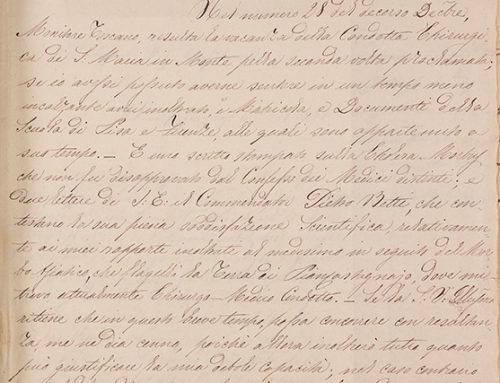 Nel numero 28 del decorso Decbre,
Monitore Toscano, risulta la vacanza della Condotta Chirurgi-
ca di S. Maria in Monte pella seconda volta proclamata;
se io avessi potuto averne sentore in un tempo meno
incalzante avrei inoltrato, i Matricola, e Documenti della
Scuola di Pisa e Firenze, alle quali sono appartenuto a
suo tempo. — E uno scritto stampato sulla Cholera-Morbus
che non fu disapprovato dal Consesso dei Medici distinti; e
due lettere di S: E: il Commendator Pietro Betti, che con-
testano la sua piena soddisfazione Scientifica, relativamen-
te ai miei rapporti inoltrati al medesimo in seguito del Mor-
bo Asiatico, che flagellò la Terra di, dove mi
trovo attualmente Chirurgo-Medico Condotto. — Se la S. V.
ritiene che in questo breve tempo, possa concorrere con resultan-
za, me ne dia cenno, perchè allora inoltrerò tutto quanto
può giustificare la mia debole capacità; nel caso contrario